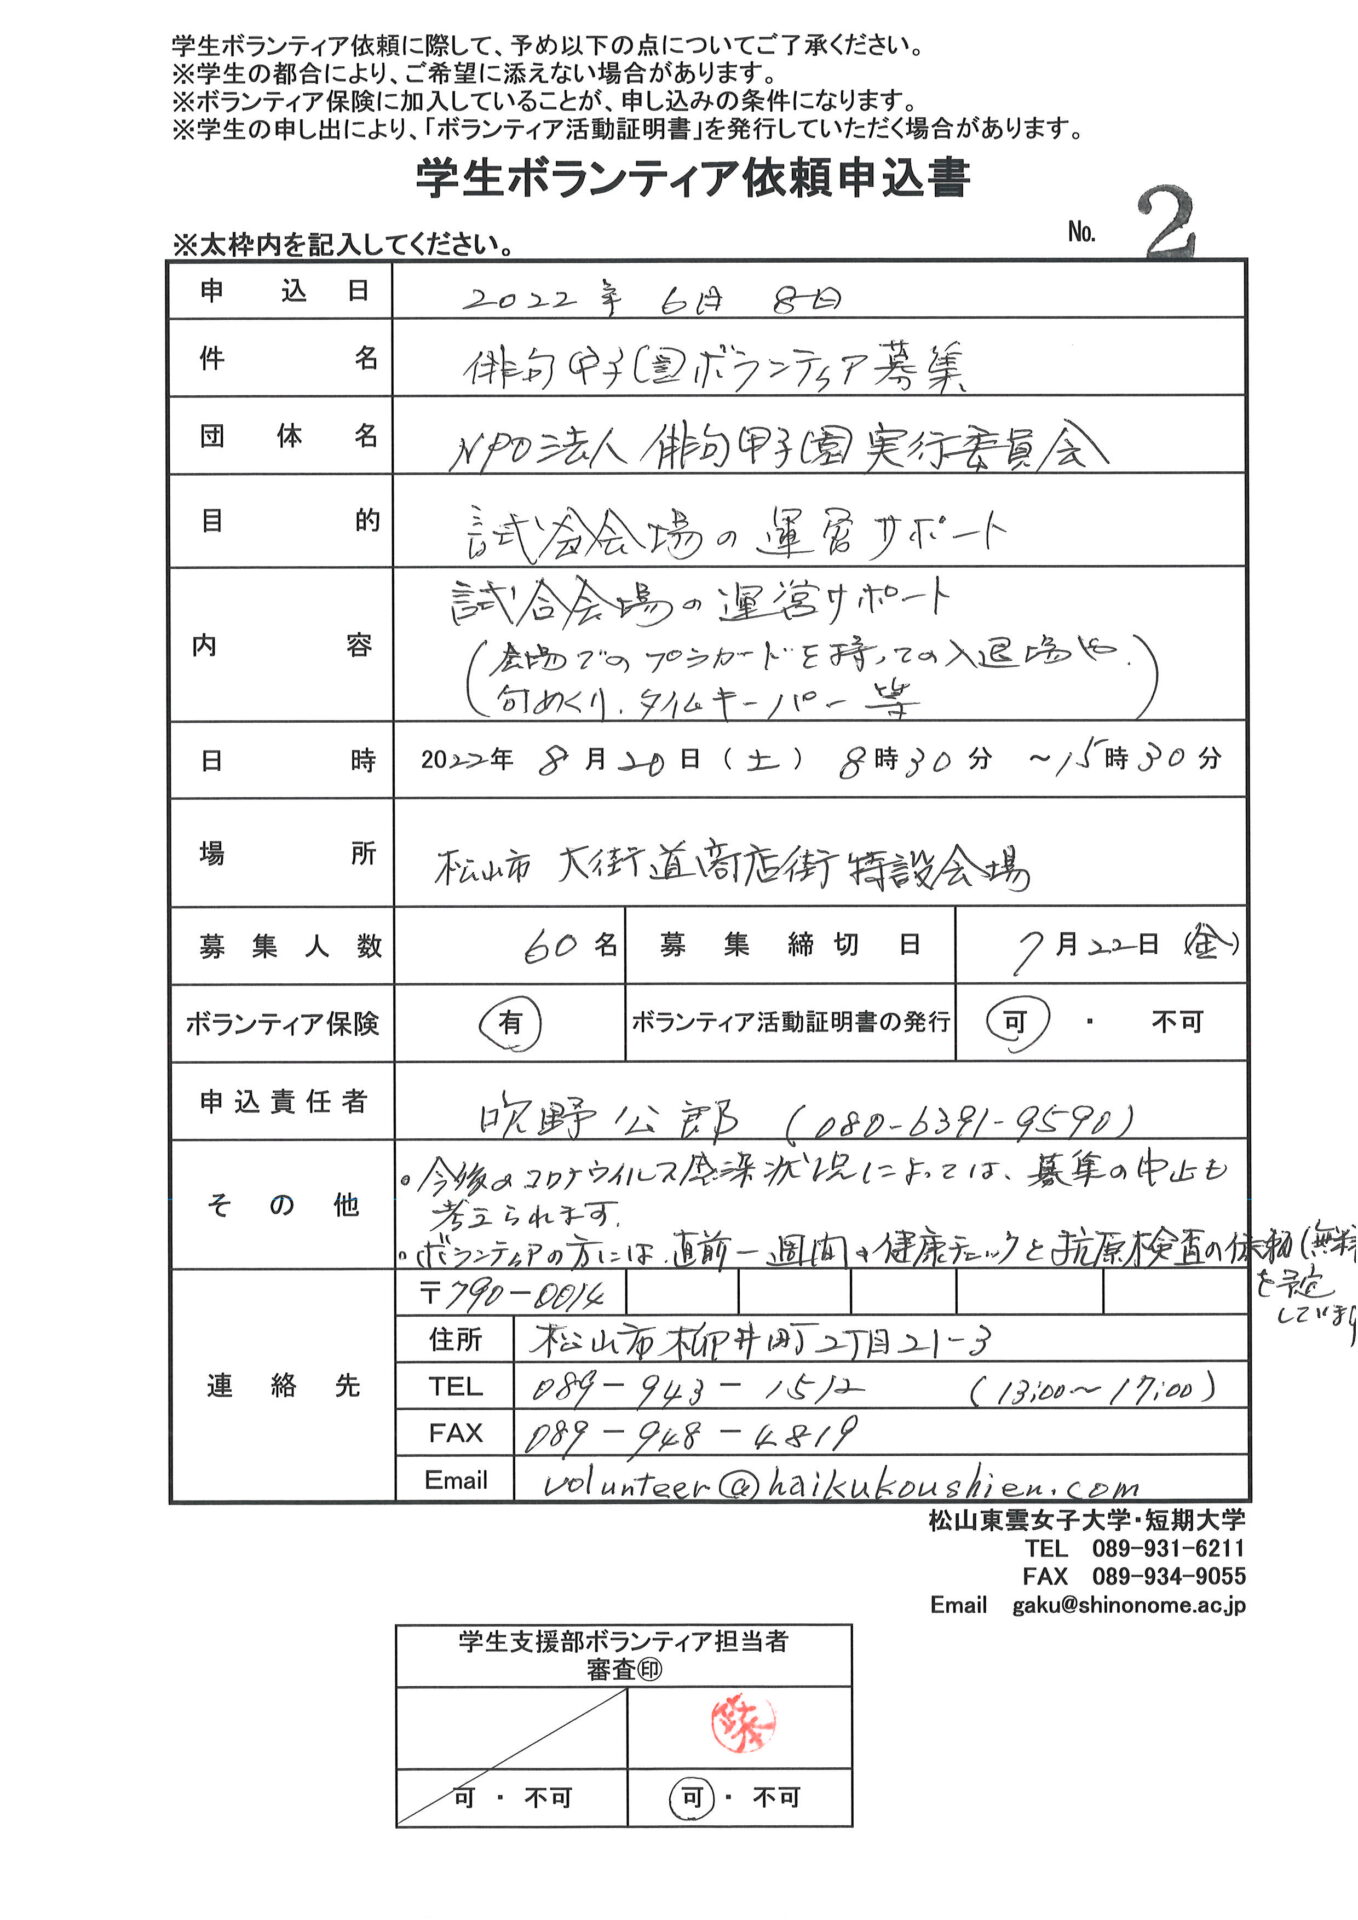 学生ボランティア依頼に際して、予め以下の点についてご了承ください。
※学生の都合により、ご希望に添えない場合があります。
※ボランティア保険に加入していることが、申し込みの条件になります。
※学生の申し出により、「ボランティア活動証明書」を発行していただく場合があります。
学生ボランティア依頼申込書
※太枠内を記入してください。 No. 2
申込日 2022年 6月 8日
件名 俳句甲子園ボランティア募集
団体名 NPO法人 俳句甲子園実行委員会
目的 試合会場の運営サポート
内容 試合会場の運営サポート
(会場でのプラカードを持っての入退場や、
句めくり、タイムキーパー 等)
日時 2022年 8月 20日(土) 8時30分 ~15時30分
場所 松山市 大街道商店街 特設会場
募集人数 60名 募集締切日 7月22日(金)
ボランティア保険 有 ボランティア活動証明書の発行 可 ・ 不可
申込責任者 吹野 公郎 (080-6391-9590)
その他 ・今後のコロナウイルス感染状況によっては、募集の中止も
考えられます。
・ボランティアの方には、直前一週間の健康チェックと抗原検査の依頼(無料
を予定
しています
連絡先 〒790-0014
住所 松山市柳井町2丁目21-3
TEL 089-943-1512 (13:00~17:00)
FAX 089-948-4819
Email volunteer@haikukoushien.com
松山東雲女子大学・短期大学
TEL 089-931-6211
FAX 089-934-9055
Email gaku@shinonome.ac.jp
学生支援部ボランティア担当者
審査㊞
可 ・ 不可 可 ・ 不可